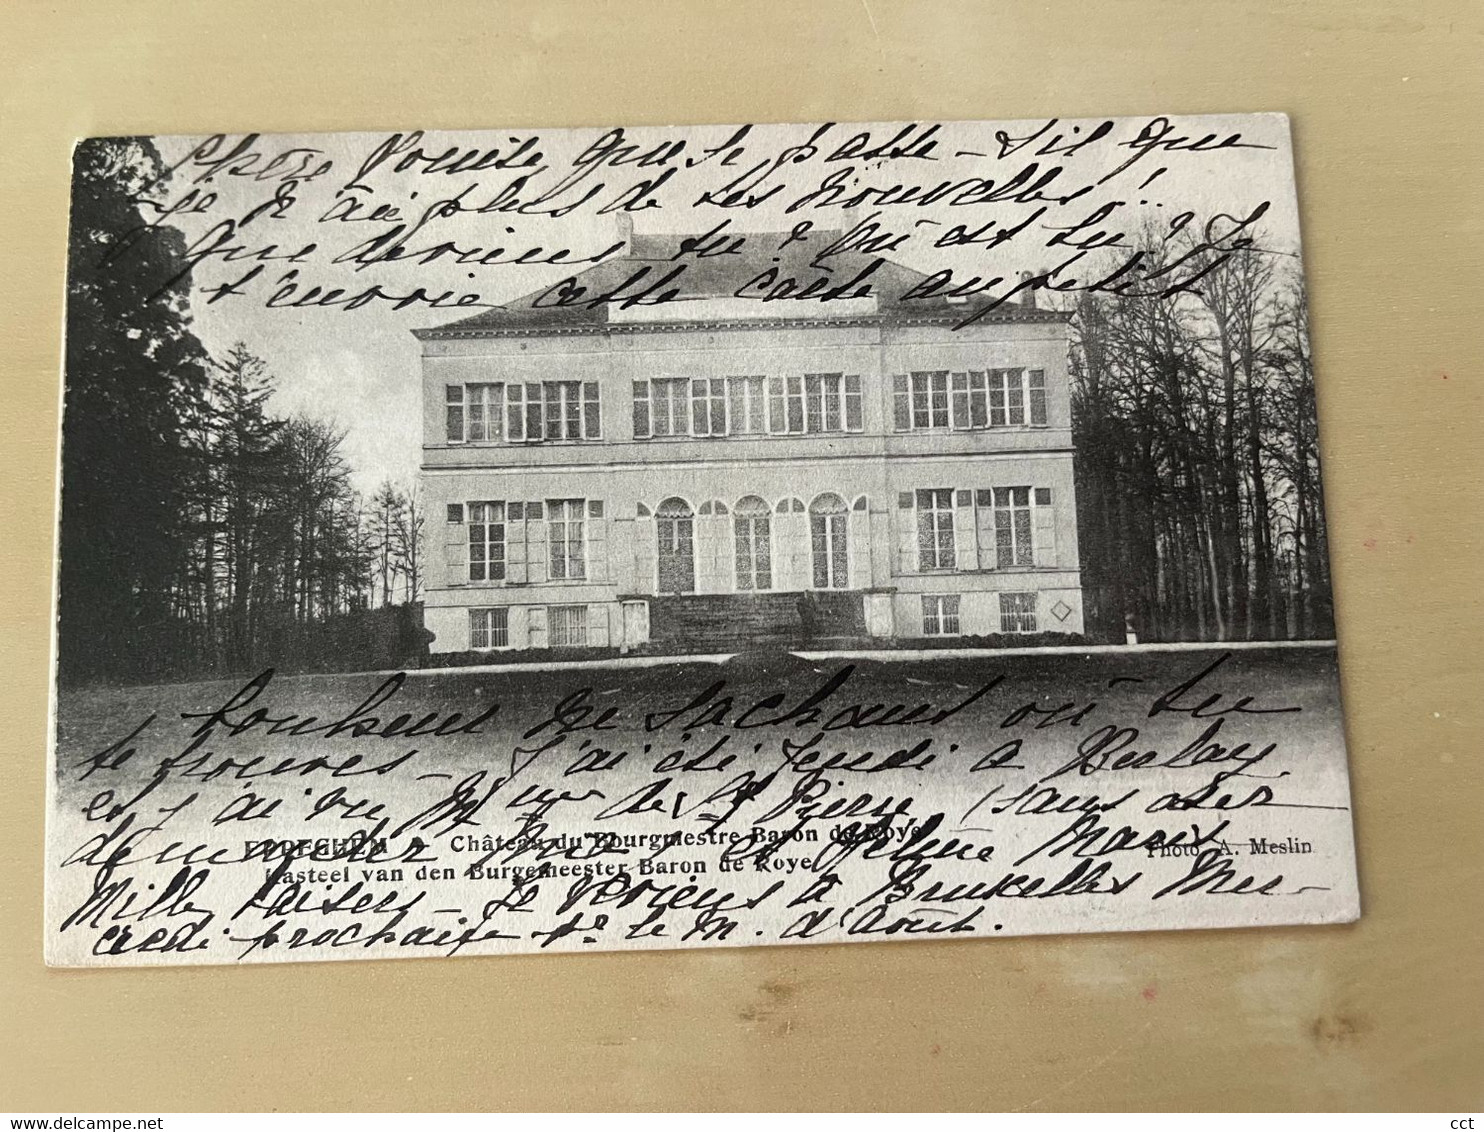 Chère Louise, que se passe-s'il que
je n'ai plus de tes nouvelles!!
Que deviens tu? Où est tu? Je
t'envoie cette carte au petit
bonheur ne sachant où tu
te trouves - J'ai été jeudi à
et j'ai vu Mme de St Pierre (sans oser
EPPEGHEM - Château du Bourgmestre Baron de Roye
demander et Hélène
Photo A. Meslin
Kasteel van den Burgemeester Baron de Roye
Mille baisers - Je reviens à Bruxelles Mer-
credi prochain pr le M. d'Août.
www.delcampe.net
cct